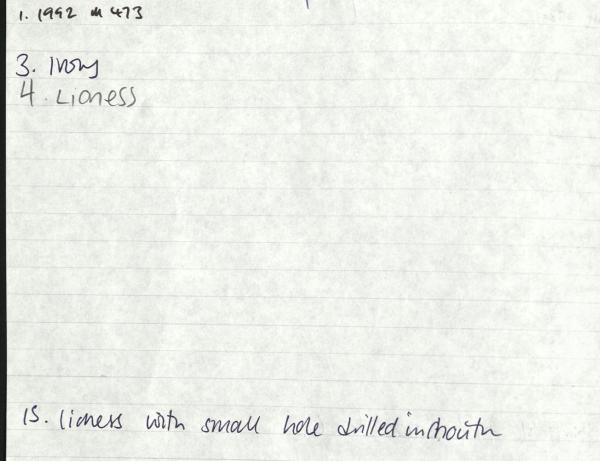 1. 1992 m 473
3. Ivory
4. Lioness
15. lioness with small hole drilled in mouth